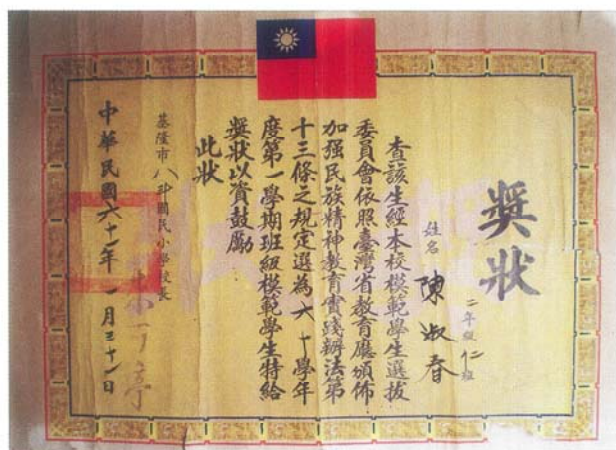 獎狀
二年級仁班
姓名 陳淑春
查該生經本校模範學生選拔
委員會依照臺灣省教育廳頒佈
加强民族精神教育實踐辦法第
十三條之規定選為六十學年
度第一學期班級模範學生特給
獎狀以資鼓勵
此狀
基隆市八斗國民小學校長
中華民國六十一年一月三十一日